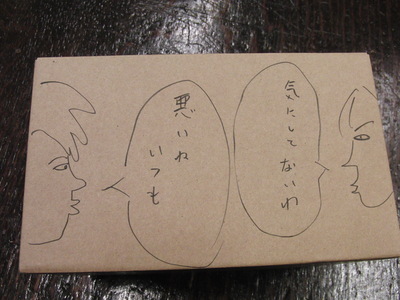 気にしてないわ
悪いね
いつも